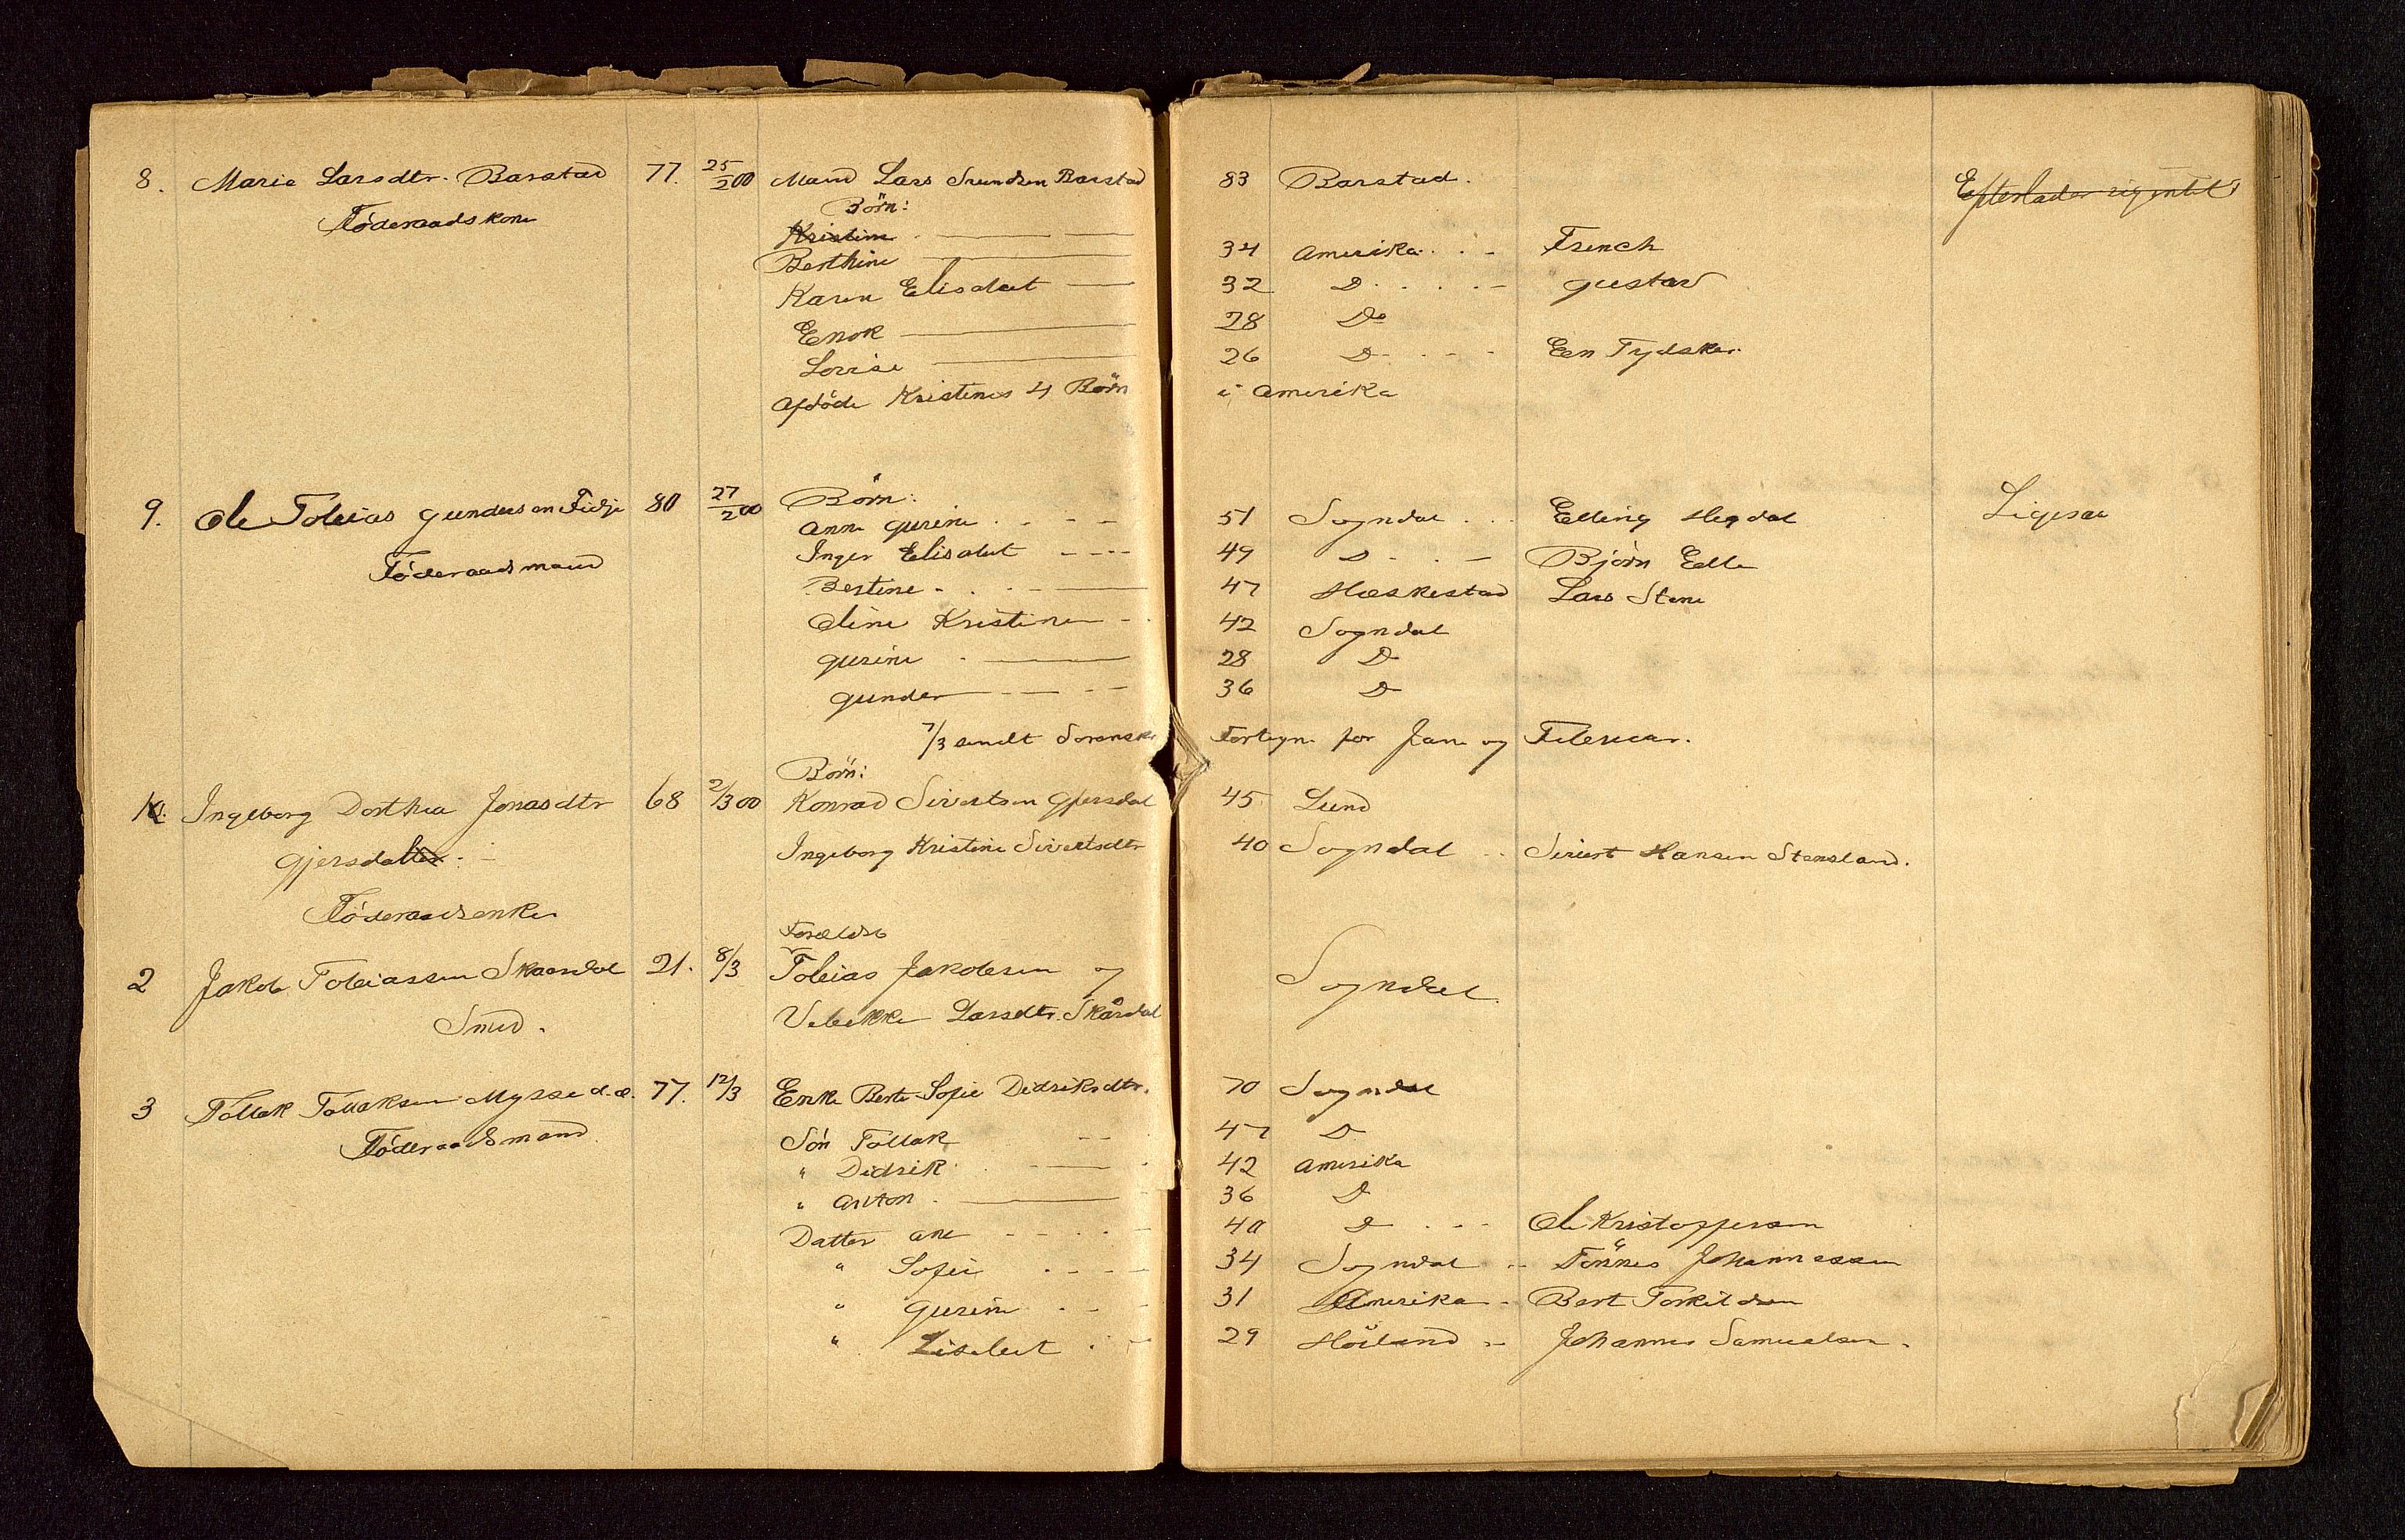 8. Marie Larsdtr. Barstad 77. 25/2 00 Mand Lars Svendsen Barstad 83 Barstad. Efterlader sig intet
Föderaadskone Börn:
Kristine
Berthine 34 Amerika French
Karen Elisabet 32 D. Gustav
Enok 28 Do
Lovise 26 D. Een Tydsker.
Afdöde Kristines 4 Börn i Amerika
9. Ole Tobias Gundersen Fidje 80 27/2 00 Börn:
Föderaadsmand
Anne Gurine 51 Sogndal Elling Hegdal Ligesaa
Inger Elisabet 49 D Björn Eelle
Bertine 47 Heskestad Lars Stene
Oline Kristine 42 Sogndal
Gurine 28 D
Gunder 36 D
7/3 sendt Sorenskr Fortegn. for Jan. og Februar.
Börn:
1. Ingeborg Dorthea Jonasdtr 68 2/3 00 Konrad Sivertsen Gjersdal 45 Lund
Gjersdal Ingeborg Kristine Sivertsdtr 40 Sogndal Sivert Hansen Stensland.
Föderaadsenke
Forældre
2 Jakob Tobiassen Skaardal 21. 8/3 Tobias Jakobsen og Sogndal.
Smed. Vibekke Larsdtr. Skårdal
3 Tollak Tollaksen Mysse d.æ. 77. 12/3 Enke Berte Sofie Didriksdtr. 70 Sogndal
Föderaadsmand Sön Tollak 47 D
" Didrik 42 Amerika
" Anton 36 D
Datter Ane 40 D Ole Kristoffersen
" Sofie 34 Sogndal Tönnes Johannessen
" Gurine 31 Amerika Bert Torkildsen
" Lisebet 29 Höiland Johannes Samuelsen.